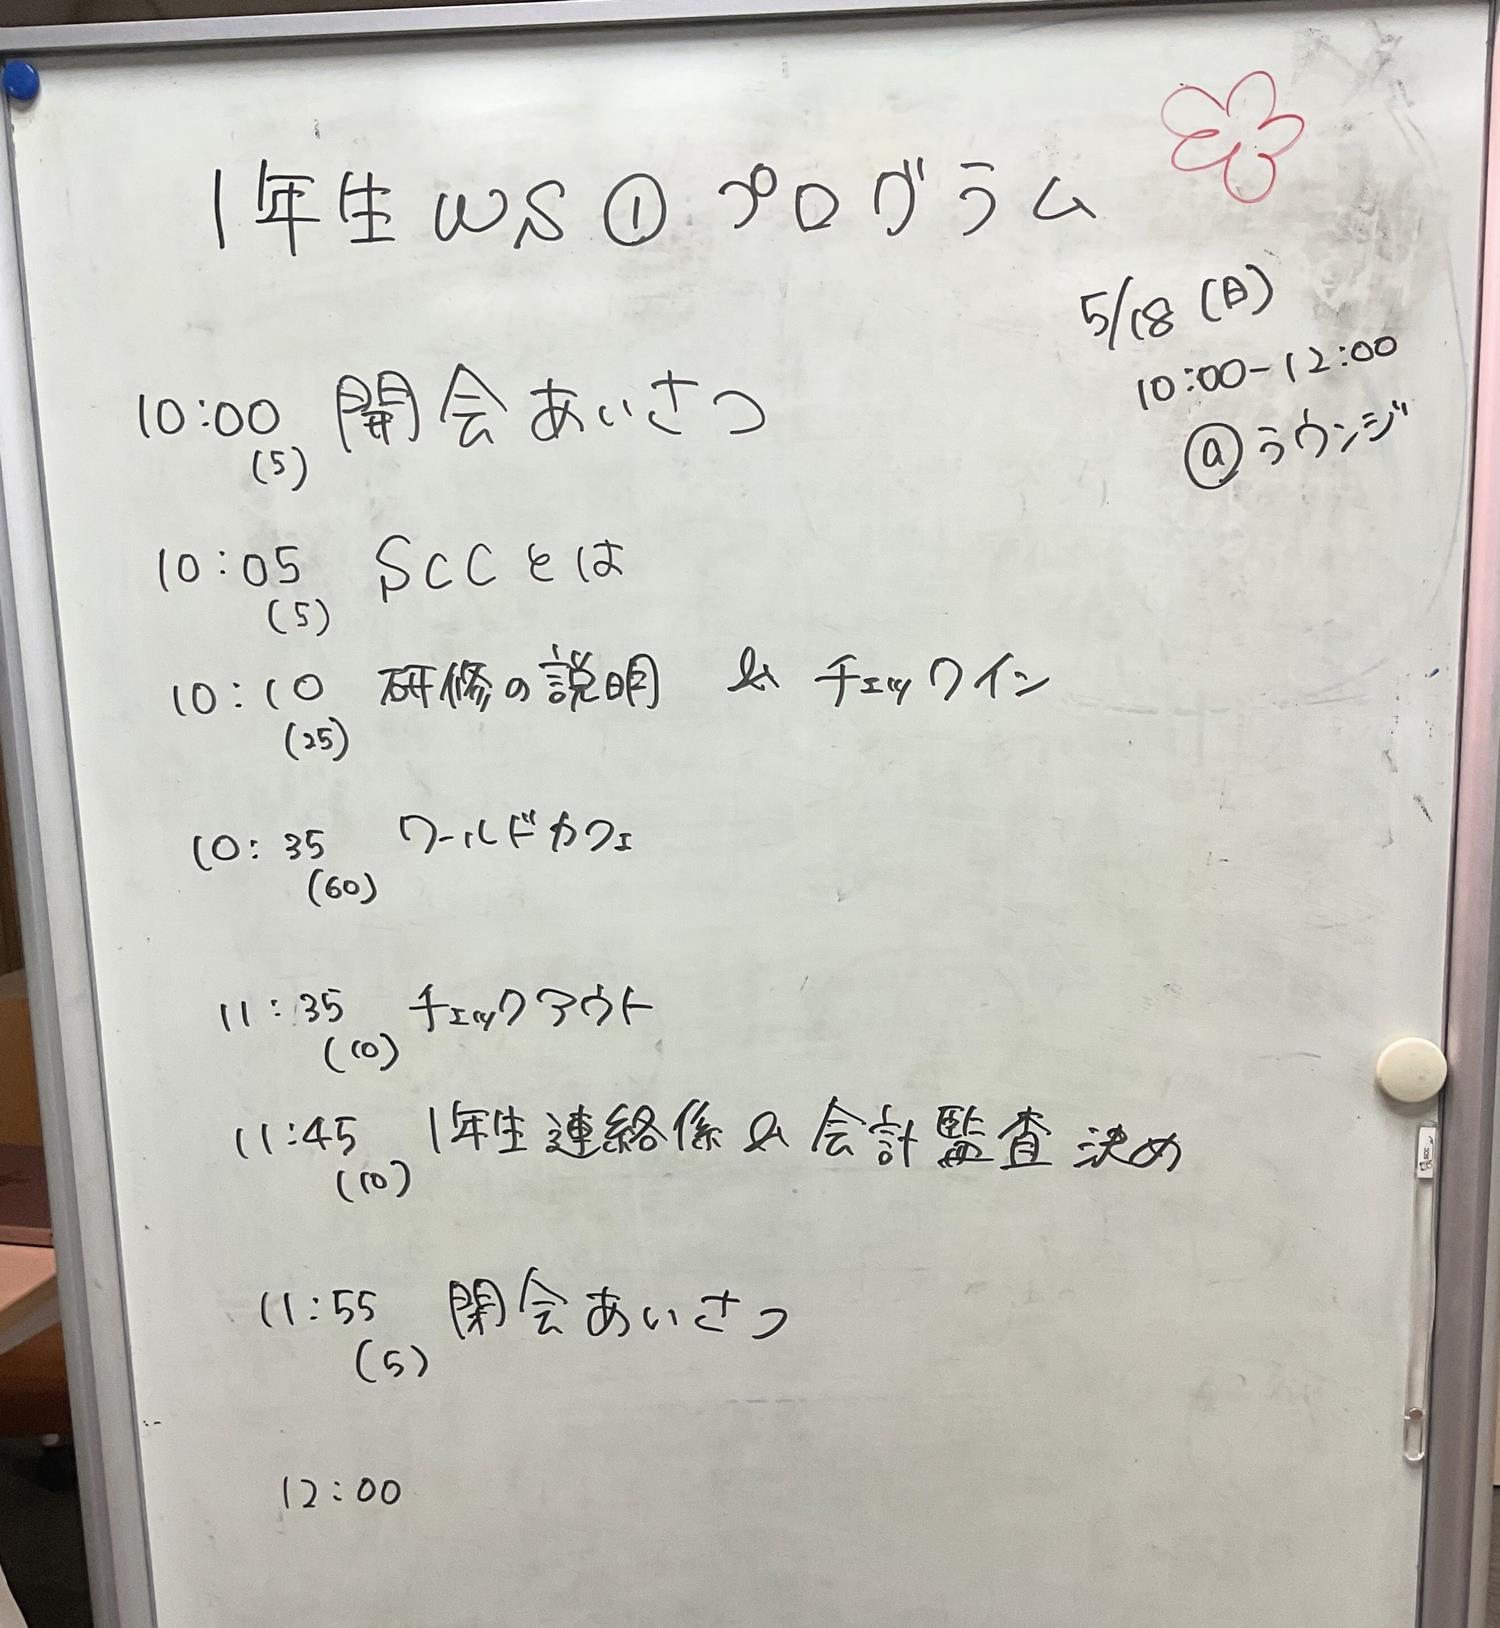 1年生WS①プログラム
5/18(日)
10:00-12:00
@ラウンジ
10:00 開会あいさつ
(5)
10:05 SCCとは
(5)
10:10 研修の説明 & チェックイン
(25)
10:35 ワールドカフェ
(60)
11:35 チェックアウト
(10)
11:45 1年生連絡係&会計監査決め
(10)
11:55 閉会あいさつ
(5)
12:00
SCC